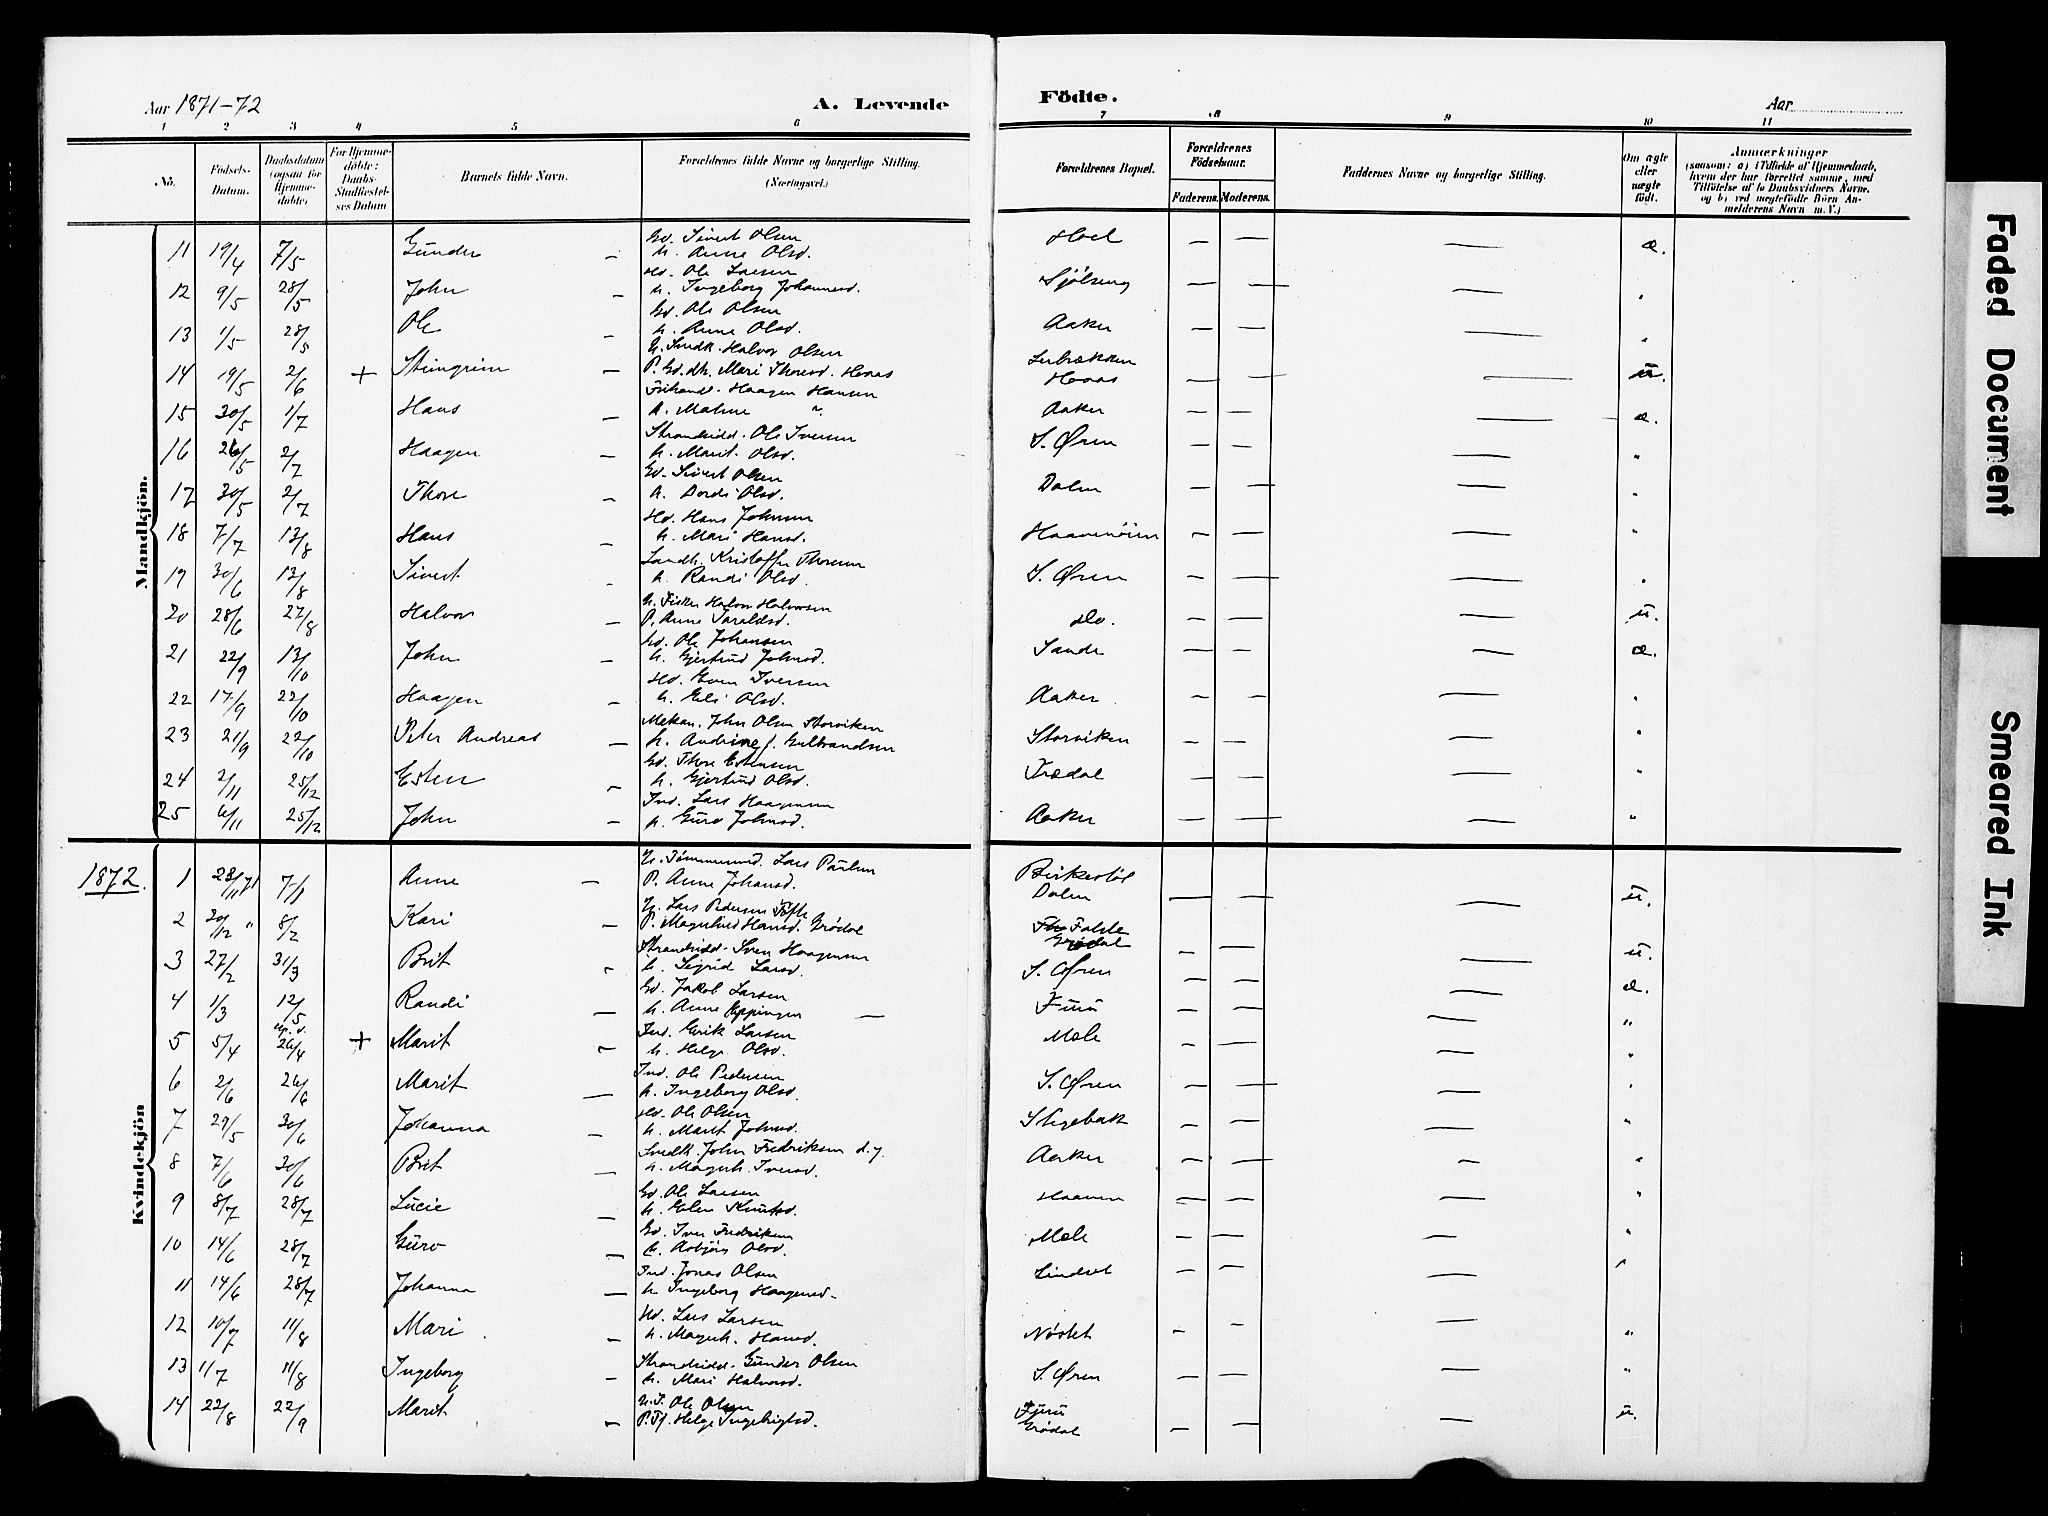 Aar 1871-72
A. Levende
Födte.
Aar
1 2 3 4 5 6 7 8 9 10 11
No.
Födsels-Datum.
Daabsdatum (ogsaa for Hjemmedöbte)
For Hjemmedöbte: Daabs-Stadfæstelses Datum
Barnets fulde Navn.
Forældrenes fulde Navne og borgerlige Stilling. (Næringsvei.)
Forældrenes Bopæl.
Forældrenes Födselsaar.
Faderens. Moderens.
Faddernes Navne og borgerlige Stilling.
Om ægte eller uægte födt.
Anmærkninger
(saasom: a) i Tilfælde af Hjemmedaab,
hvem der har forrettet samme, med
Tilföielse af to Daabsvidners Navne.
og b) ved uægtefödte Börn An-
melderens Navn m. V.)
Mandkjön.
11 19/4 7/5 Gunder — Gd. Sivert Olsen h. Anne Olsd. Hoel — — — æ.
12 9/5 28/5 John — Hd. Ole Larsen h. Ingeborg Johannesd. Sjölseng — — — "
13 1/5 28/5 Ole — Gd. Ole Olsen h. Anne Olsd. Aaker — — — "
14 19/5 2/6 + Steingrim — U. Snedk. Halvor Olsen P. Gd. dt. Mari Thoresd. Hoaas Lerbækken Hoaas — — — u.
15 30/5 1/7 Hans — Haagen Hansen h. Malene " Aaker — — — æ.
16 26/5 2/7 Haagen — Strandsidd. Ole Iversen h. Marit Olsd. S. Øren — — — "
17 30/5 2/7 Thore — Gd. Sivert Olsen h. Dordi Olsd. Dalen — — — "
18 7/7 13/8 Hans — Hd. Hans Johnsen h. Mari Hansd. — — — "
19 30/6 13/8 Sivert — Landh. Kristoffer Thoresen h. Randi Olsd. S. Øren — — — "
20 28/6 27/8 Halvor — U. Fisker Halvor Halvorsen P. Anne Taraldsd. do. — — — u.
21 22/9 13/10 John — Gd. Ole Johansen h. Gjertrud Johnsd. Sande — — — æ.
22 17/9 22/10 Haagen — Hd. Even Iversen h. Eli Olsd. Aaker — — — "
23 21/9 22/10 Peter Andreas — Mekan. John Olsen Storviken h. Andrine f. Gulbrandsen Storviken — — — "
24 2/11 25/12 Esten — Gd. Thore Estensen h. Gjertrud Olsd. Trædal — — — "
25 6/11 25/12 John — Ind. Lars Haagensen h. Guro Johnsd. Aaker — — — "
1872.
Kvindekjön
1 23/11 71 7/1 Anne — U. Tömmermd. Lars Paulsen P. Anne Johansd. Birkestöl Dalen — — — u.
2 30/12 " 8/2 Kari — U. Lars Pedersen P. Magnhild Hansd. Grödal Grödal — — — u.
3 27/2 31/3 Brit — Strandsidd. Sven Haagensen h. Sigrid Larsd. S. Øren — — — æ.
4 1/3 12/5 Randi — Gd. Jakob Larsen h. Anne — Furu — — — "
5 5/4 26/4 + Marit — Ind. Erik Larsen h. Helge Olsd. Mæle — — — "
6 2/6 26/6 Marit — Ind. Ole Pedersen h. Ingeborg Olsd. S. Øren — — — "
7 29/5 30/6 Johanna — Hd. Ole Olsen h. Marit Johnsd. — — — "
8 7/6 30/6 Brit — Snedk. John Fredriksen d.y. h. Magnh. Iversd. Aaker — — — "
9 8/7 28/7 Lucie — Gd. Ole Larsen h. Elen Knutsd. Haaven — — — "
10 14/6 28/7 Guro — Gd. Iver Fredriksen h. Asbjörg Olsd. Mæle — — — "
11 14/6 28/7 Johanna — Ind. Jonas Olsen h. Ingeborg Haagensd. Lindset — — — "
12 10/7 11/8 Mari — Hd. Lars Larsen h. Magnh. Hansd. Nöstet — — — "
13 11/7 11/8 Ingeborg — Strandsidd. Gunder Olsen h. Mari Halvorsd. S. Øren — — — "
14 22/8 22/9 Marit — U. T. Ole Olsen P. Tj. Helge Ingebrigtsd. Grödal — — — u.
Faded Document
Smeared Ink